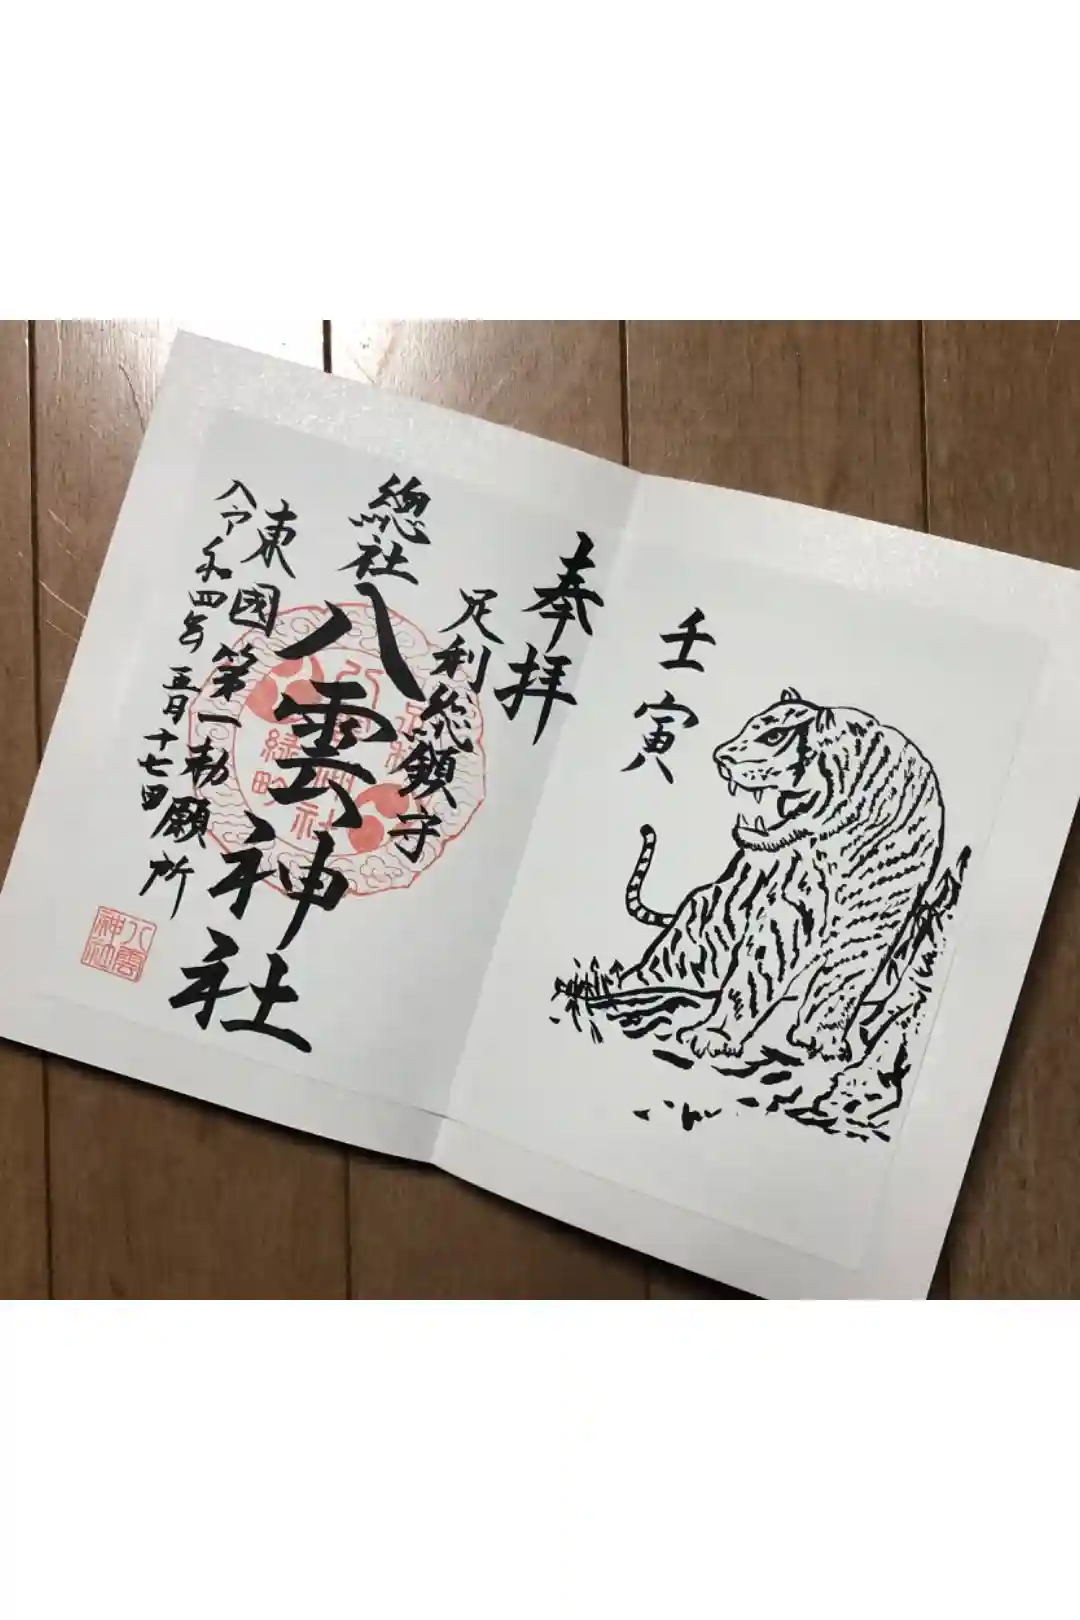 壬寅
奉拝
足利総鎮守
總社
八雲神社
東國第一勅願所
令和四年五月十七日
八雲神社